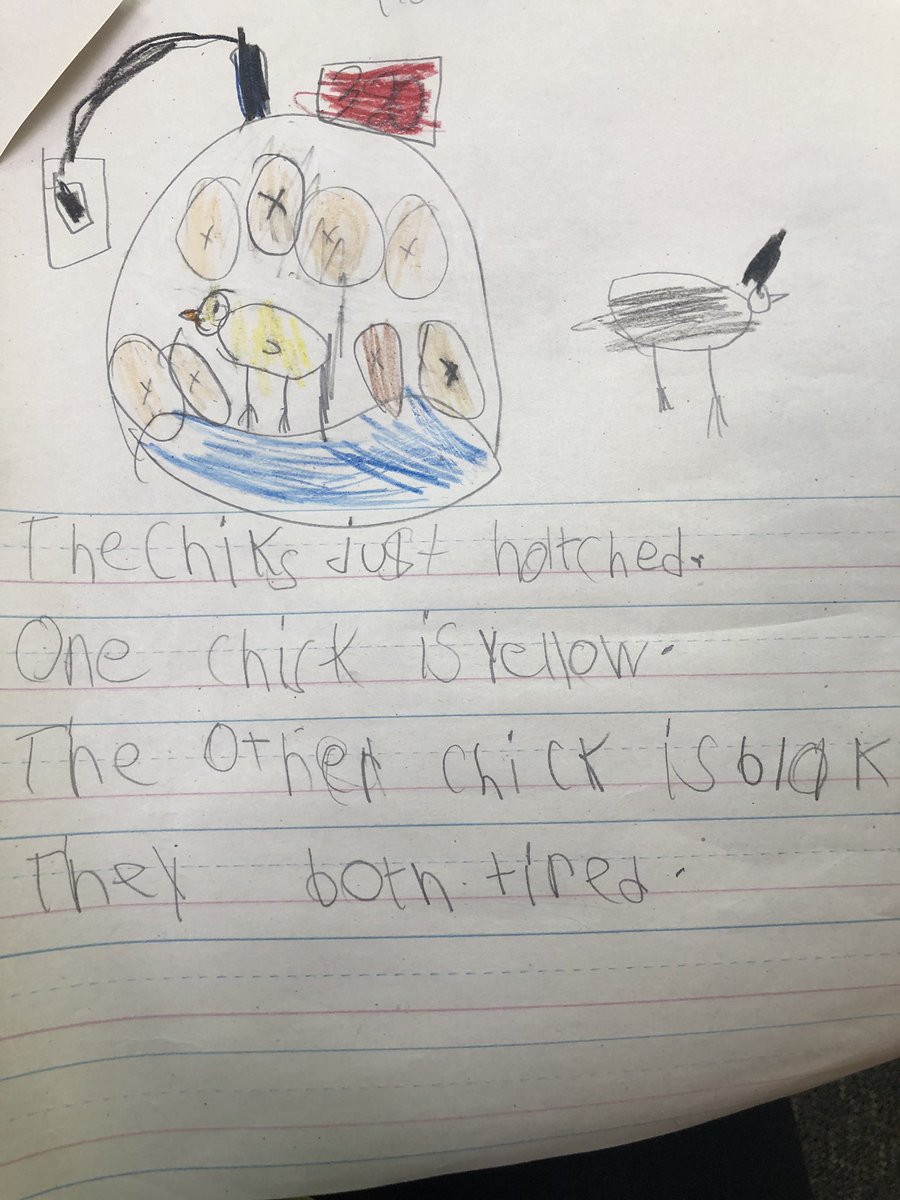 The Chiks just hatched.
One chick is Yellow.
The Other chick is blak
They both tired.